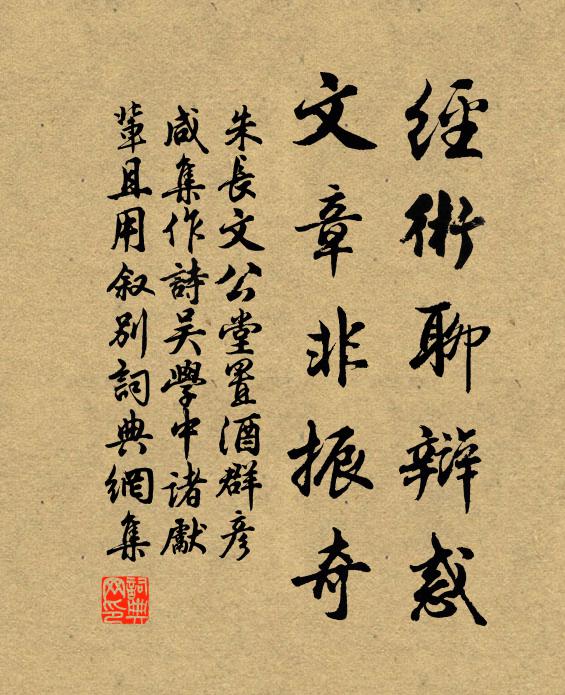 經術聊辯惑
文章非振奇
朱長文公堂置酒群彦
咸集作詩吴學中諸獻
輩且用叙别詞典網集
詞典网印